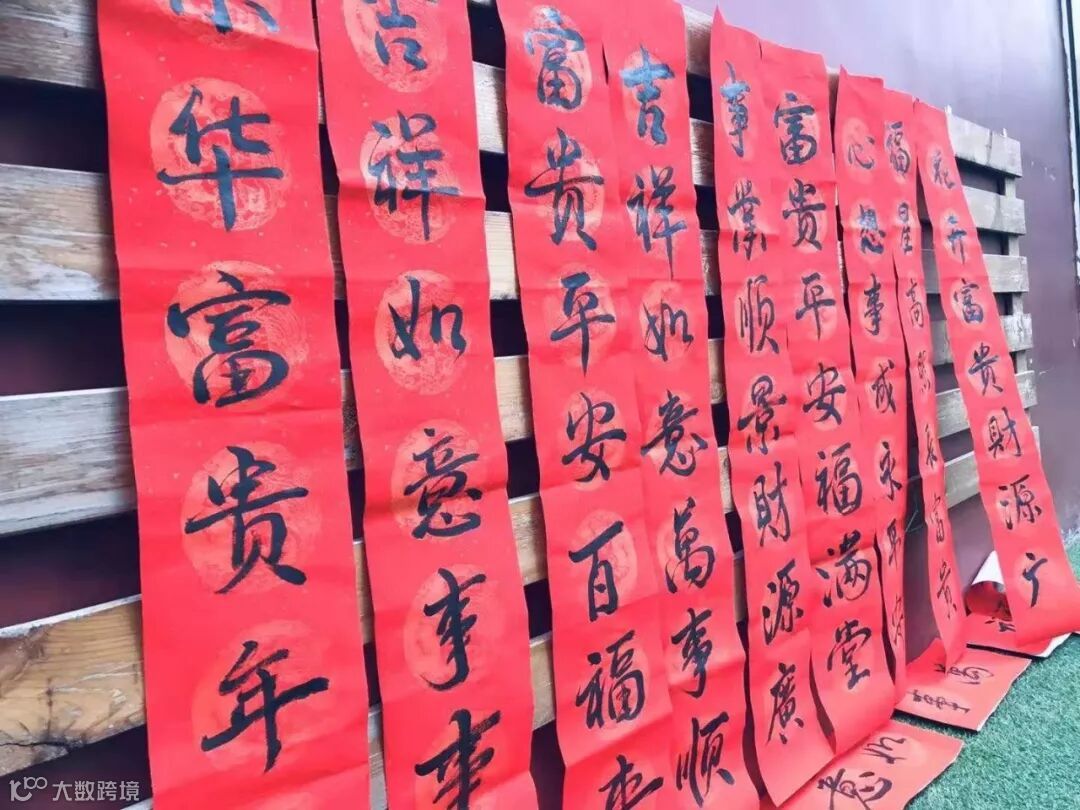 华富贵年
吉祥如意事事
富贵平安百福
吉祥如意萬事顺
事業顺景財源廣
富贵平安福满堂
心想事成永平安
福星高照永富贵
花开富贵財源广
大数跨境